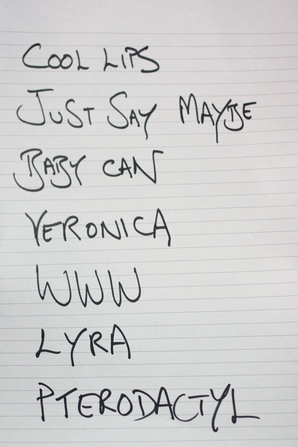 COOL LIPS
JUST SAY MAYBE
BABY CAN
VERONICA
WWW
LYRA
PTERODACTYL